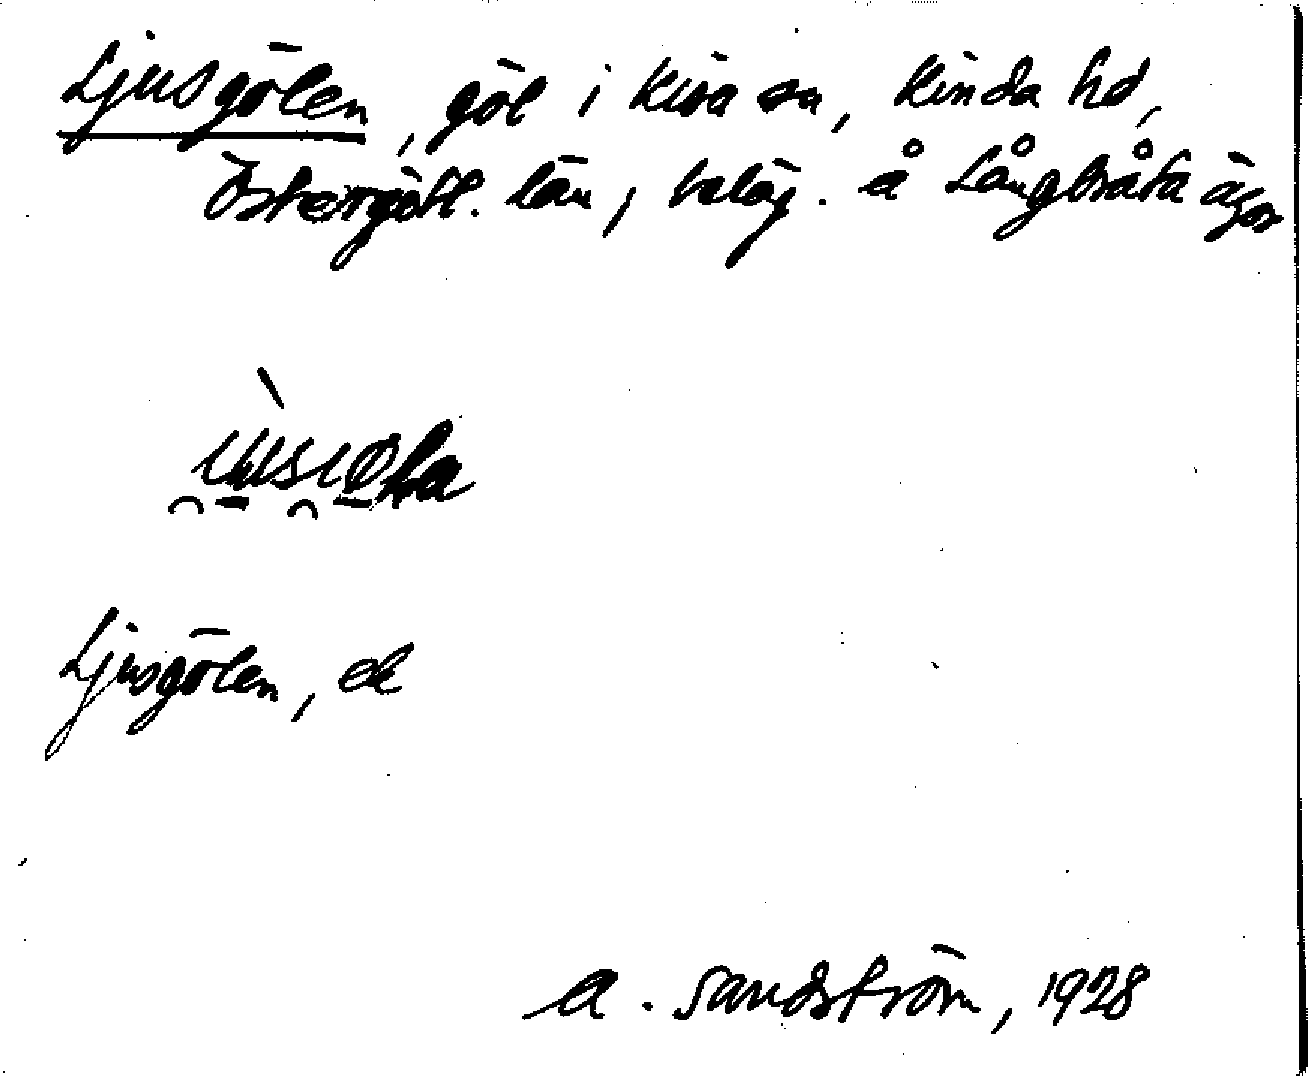 Ljusgölen, göl i Kisa sn, Kinda hd,
Östergötl. län, beläg. å Långbråta ägor
Ljusgölen, ek
A. Sandström, 1928